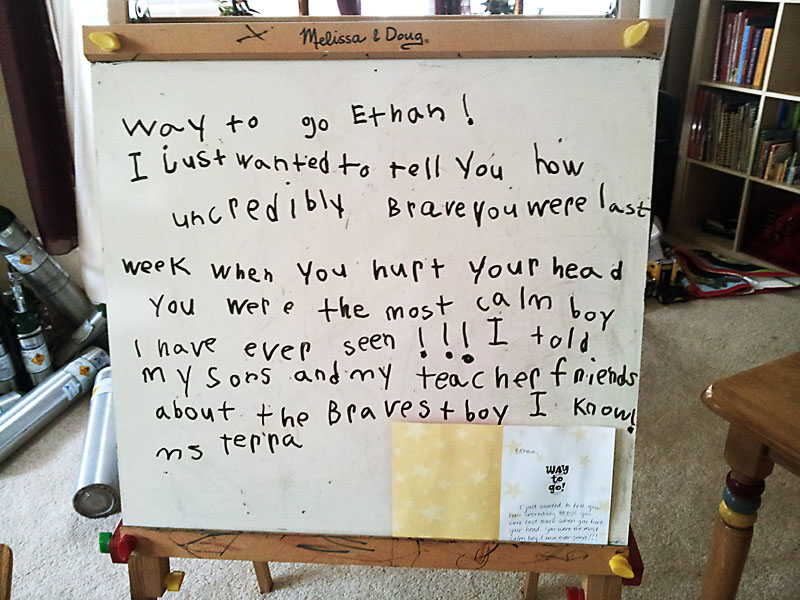 Melissa & Doug®
Way to go Ethan!
I just wanted to tell You how
uncredibly Brave you were last
week when you hurt your head
you were the most calm boy
I have ever seen!!! I told
my sons and my teacher friends
about the Bravest boy I know!
ms terra
Ethan,
WAY
to
go!
I just wanted to tell you
how incredibly brave you
were last week when you hurt
your head. You were the most
calm boy I have ever seen!!!